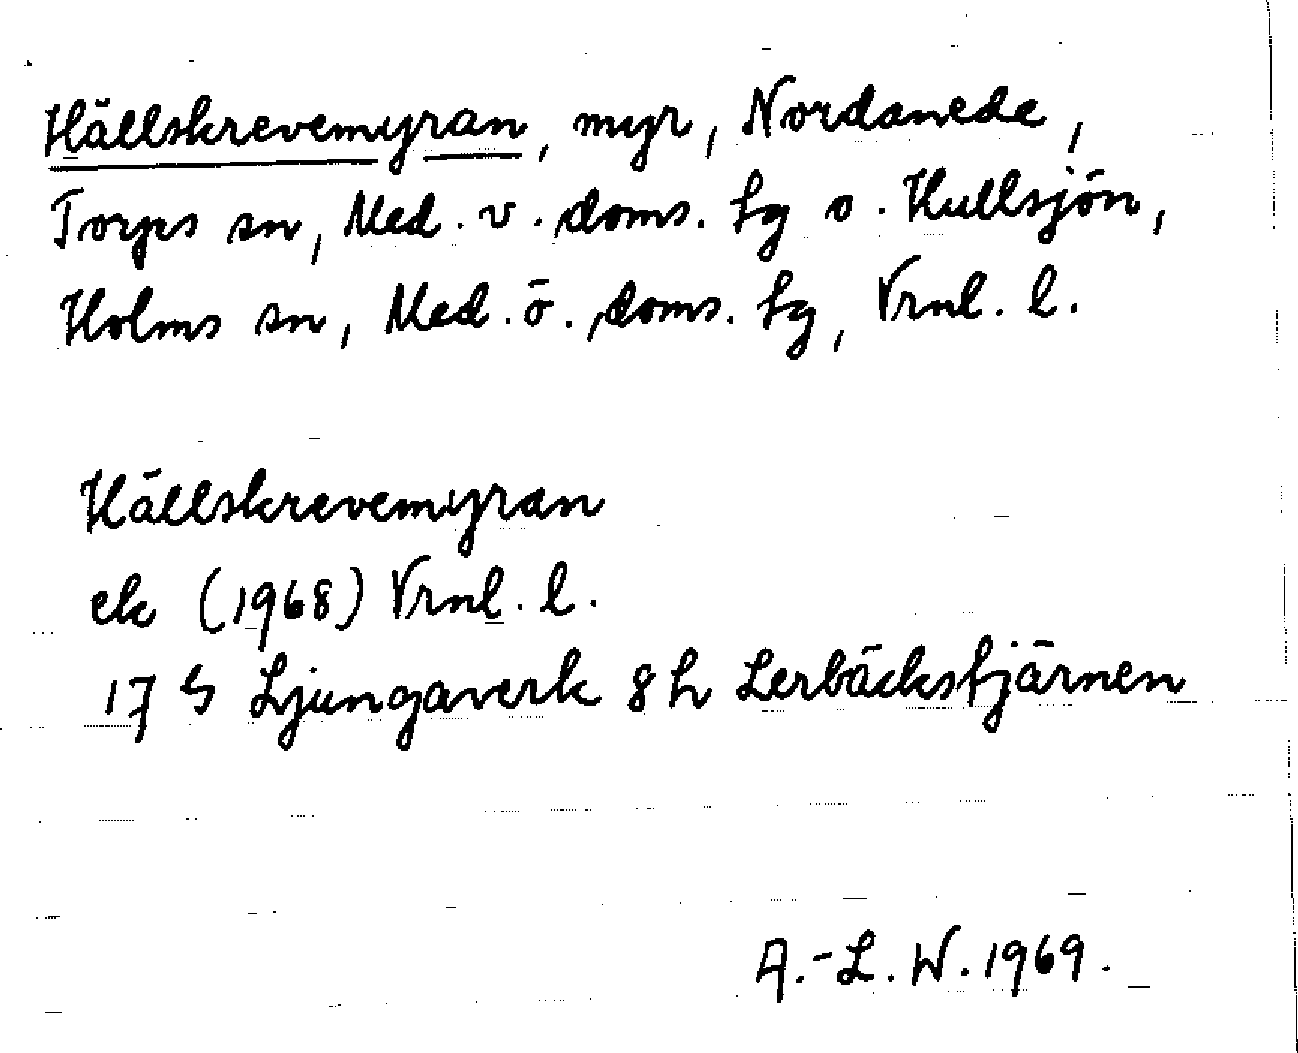 Hällskrevemyran, myr, Nordanede,
Torps sn, Med. v. doms. tg o. Hullsjön,
Holms sn, Med. ö. doms. tg, Vrnl. l.
Hällskrevemyran
ek (1968) Vrnl. l.
17 G Ljungaverk 8 h Lerbäckstjärnen
A.-L. W. 1969.